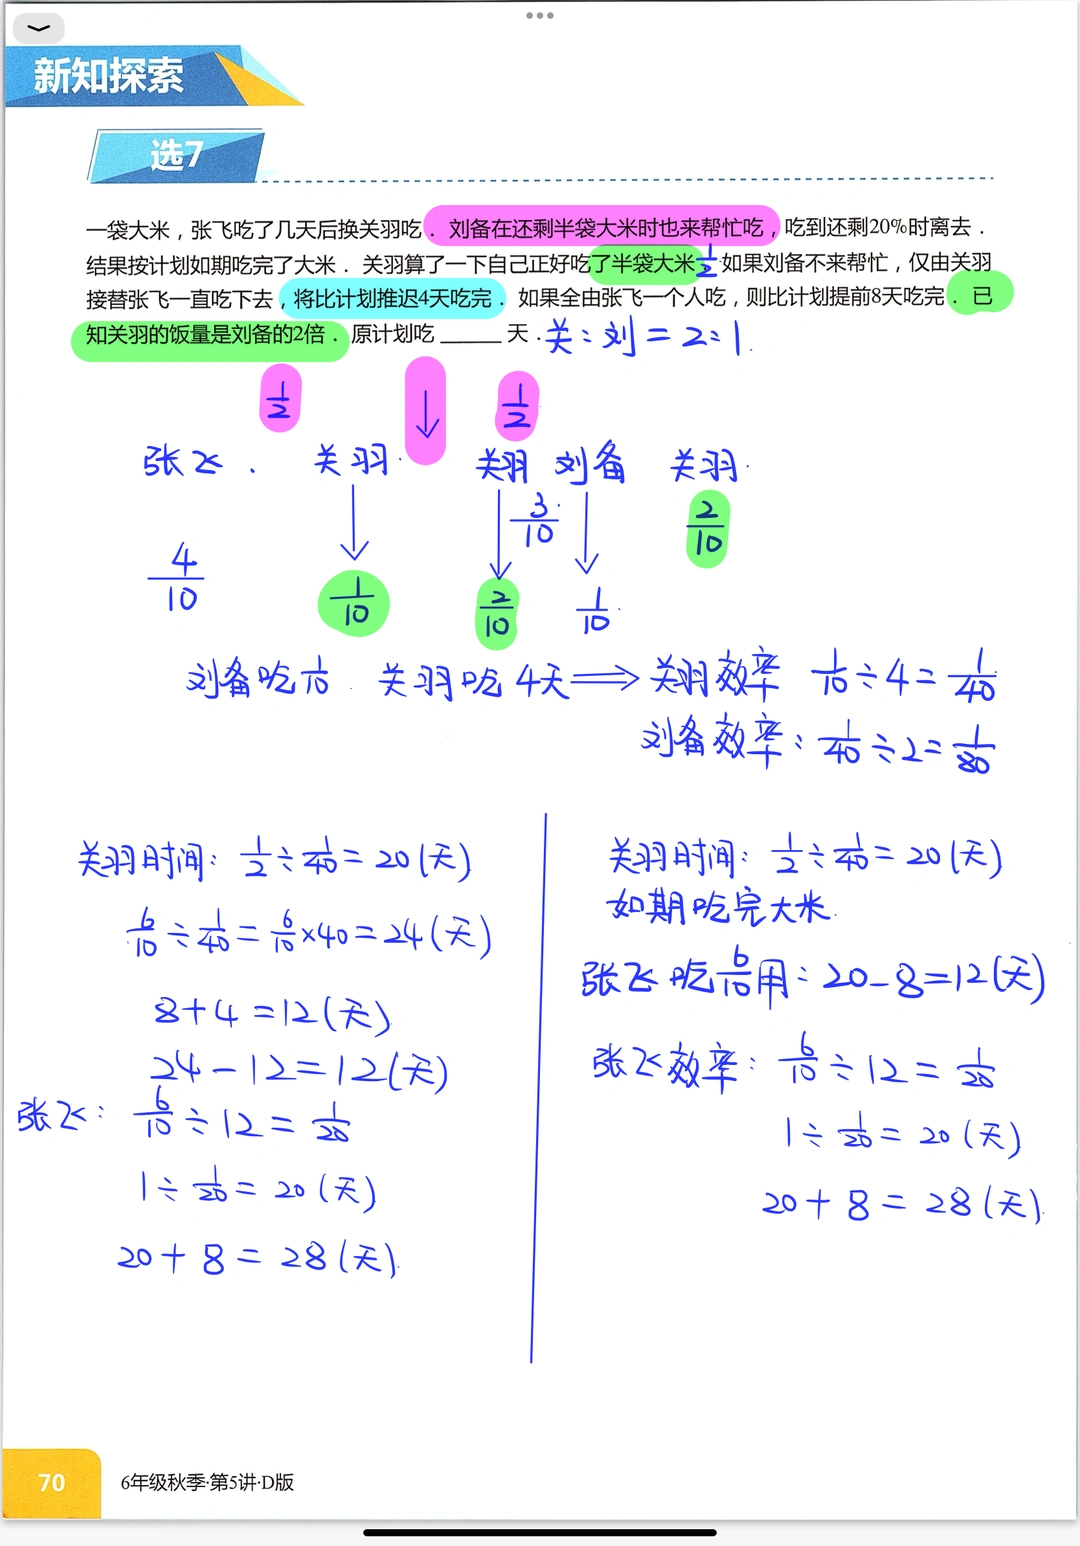 新知探索
选7
一袋大米，张飞吃了几天后换关羽吃．刘备在还剩半袋大米时也来帮忙吃，吃到还剩20%时离去．
结果按计划如期吃完了大米．关羽算了一下自己正好吃了半袋大米 1/2 如果刘备不来帮忙，仅由关羽
接替张飞一直吃下去，将比计划推迟4天吃完．如果全由张飞一个人吃，则比计划提前8天吃完．已
知关羽的饭量是刘备的2倍．原计划吃______天．关：刘＝2：1．
1/2 ↓ 1/2
张飞． 关羽． 关羽 刘备 关羽．
3/10 2/10
4/10 1/10 2/10 1/10
刘备吃1/10 关羽吃4天⟹关羽效率 1/10÷4＝1/40
刘备效率：1/40÷2＝1/80
关羽时间：1/2÷1/40＝20(天)
6/10÷1/40＝6/10×40＝24(天)
8+4＝12(天)
24－12＝12(天)
张飞：6/10÷12＝1/20
1÷1/20＝20(天)
20+8＝28(天)
关羽时间：1/2÷1/40＝20(天)
如期吃完大米．
张飞吃6/10用：20－8＝12(天)
张飞效率：6/10÷12＝1/20
1÷1/20＝20(天)
20+8＝28(天)
70
6年级秋季·第5讲·D版